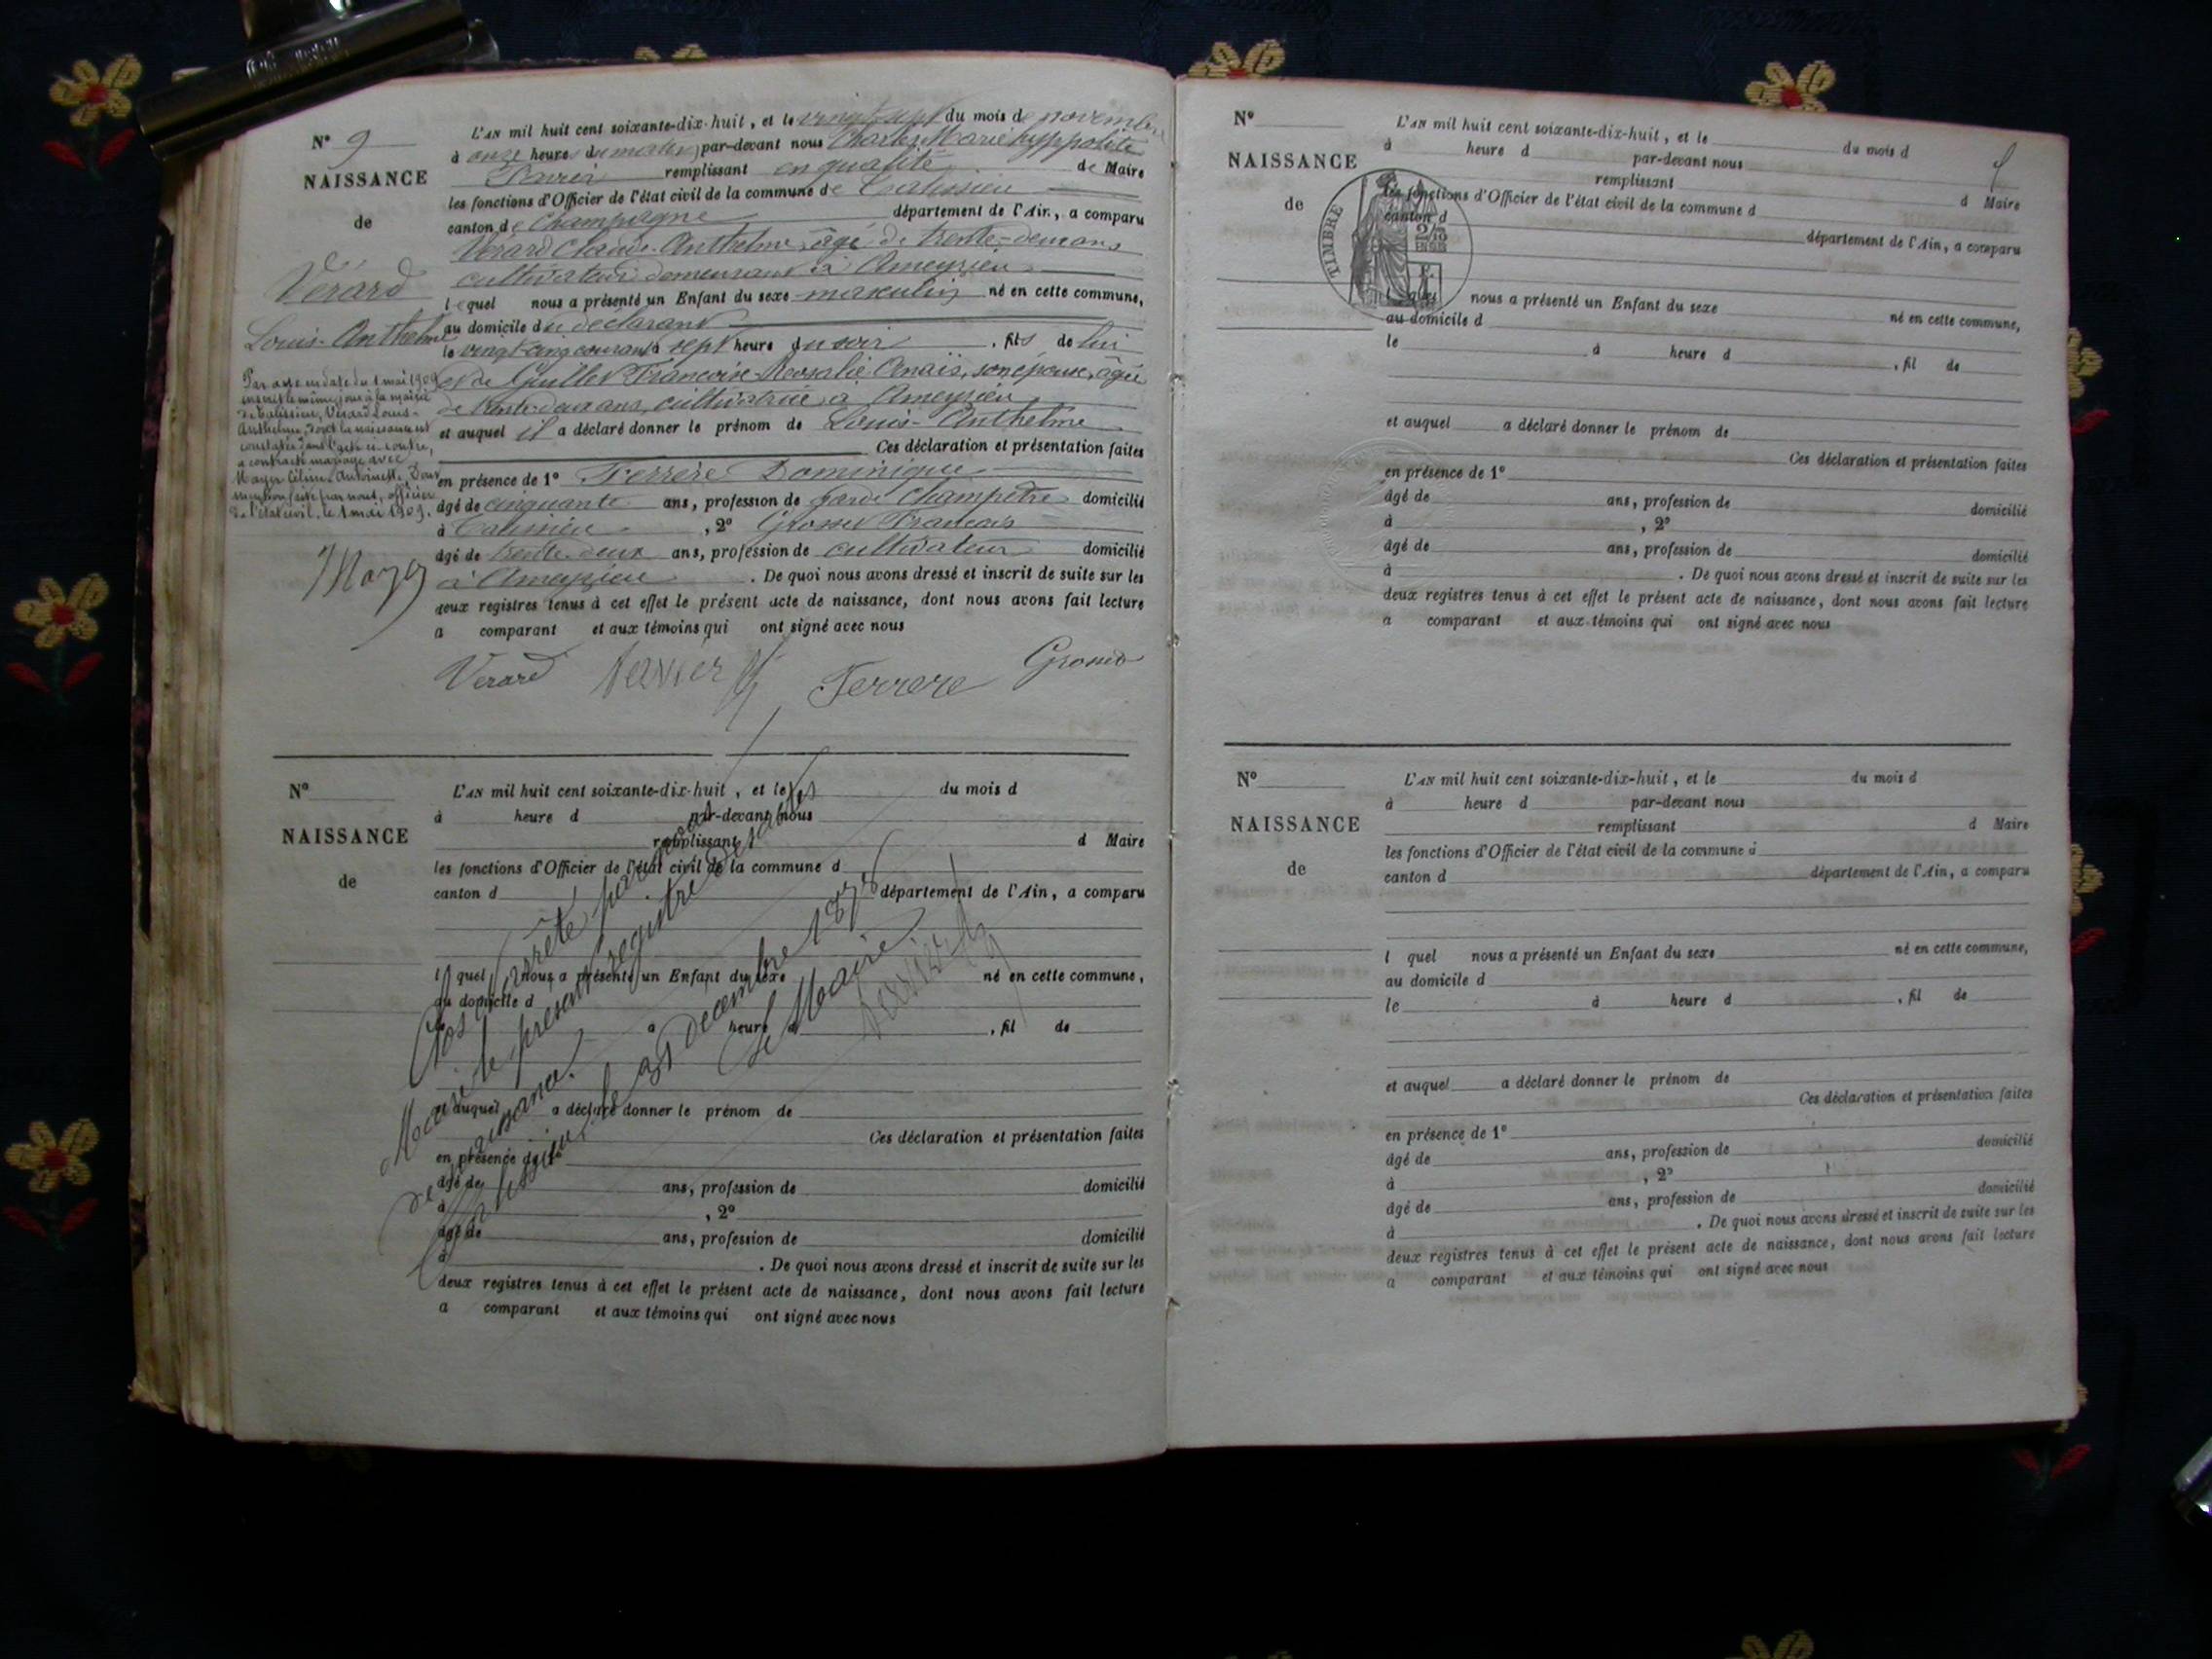 N° 9
NAISSANCE
de
Vérard
Louis-Anthelme
Par acte en date du 1 mai 1909
inscrit le même jour à la mairie
de Talissieu, Vérard Louis-
Anthelme, dont la naissance est
constatée dans l'acte ci-contre,
a contracté mariage avec
Mayer Céline Antoinette. Dont
mention faite par nous, officier
de l'état civil, le 1 mai 1909.
L'AN mil huit cent soixante-dix-huit, et le vingt sept du mois de novembre
à onze heures du matin, par-devant nous Charles Marie hyppolite
remplissant en qualité de Maire
les fonctions d'Officier de l'état civil de la commune de Talissieu
canton de Champagne département de l'Ain, a comparu
Vérard Claude-Anthelme, âgé de trente-deux ans
cultivateur demeurant à Ameyzieu
lequel nous a présenté un Enfant du sexe masculin né en cette commune,
au domicile du déclarant
le vingt cinq courant à sept heure du soir, fils de lui
et de Gullet Françoise-Rosalie Anaïs, son épouse, âgée
de trente deux ans, cultivatrice à Ameyzieu
et auquel il a déclaré donner le prénom de Louis-Anthelme
Ces déclaration et présentation faites
en présence de 1° Ferrere Dominique
âgé de cinquante ans, profession de garde champêtre domicilié
à Talissieu, 2° Grosset Francois
âgé de trente-deux ans, profession de cultivateur domicilié
à Ameyzieu. De quoi nous avons dressé et inscrit de suite sur les
deux registres tenus à cet effet le présent acte de naissance, dont nous avons fait lecture
a comparant et aux témoins qui ont signé avec nous
Verard Ferrere Grosset
N°
NAISSANCE
de
L'AN mil huit cent soixante-dix-huit, et le du mois d
à heure d par-devant nous
remplissant d Maire
les fonctions d'Officier de l'état civil de la commune d
canton d département de l'Ain, a comparu
l quel nous a présenté un Enfant du sexe né en cette commune,
au domicile d
le à heure d , fil de
et auquel a déclaré donner le prénom de
Ces déclaration et présentation faites
en présence de 1°
âgé de ans, profession de domicilié
à , 2°
âgé de ans, profession de domicilié
à . De quoi nous avons dressé et inscrit de suite sur les
deux registres tenus à cet effet le présent acte de naissance, dont nous avons fait lecture
a comparant et aux témoins qui ont signé avec nous
Clos et arrêté par nous
Maire le présent registre des actes
de naissance.
Talissieu, le 31 décembre 1878
Le Maire
N°
NAISSANCE
de
TIMBRE
2/10
EN SUS
L'AN mil huit cent soixante-dix-huit, et le du mois d
à heure d par-devant nous
remplissant d Maire
les fonctions d'Officier de l'état civil de la commune d
canton d département de l'Ain, a comparu
l quel nous a présenté un Enfant du sexe né en cette commune,
au domicile d
le à heure d , fil de
et auquel a déclaré donner le prénom de
Ces déclaration et présentation faites
en présence de 1°
âgé de ans, profession de domicilié
à , 2°
âgé de ans, profession de domicilié
à . De quoi nous avons dressé et inscrit de suite sur les
deux registres tenus à cet effet le présent acte de naissance, dont nous avons fait lecture
a comparant et aux témoins qui ont signé avec nous
N°
NAISSANCE
de
L'AN mil huit cent soixante-dix-huit, et le du mois d
à heure d par-devant nous
remplissant d Maire
les fonctions d'Officier de l'état civil de la commune d
canton d département de l'Ain, a comparu
l quel nous a présenté un Enfant du sexe né en cette commune,
au domicile d
le à heure d , fil de
et auquel a déclaré donner le prénom de
Ces déclaration et présentation faites
en présence de 1°
âgé de ans, profession de domicilié
à , 2°
âgé de ans, profession de domicilié
à . De quoi nous avons dressé et inscrit de suite sur les
deux registres tenus à cet effet le présent acte de naissance, dont nous avons fait lecture
a comparant et aux témoins qui ont signé avec nous